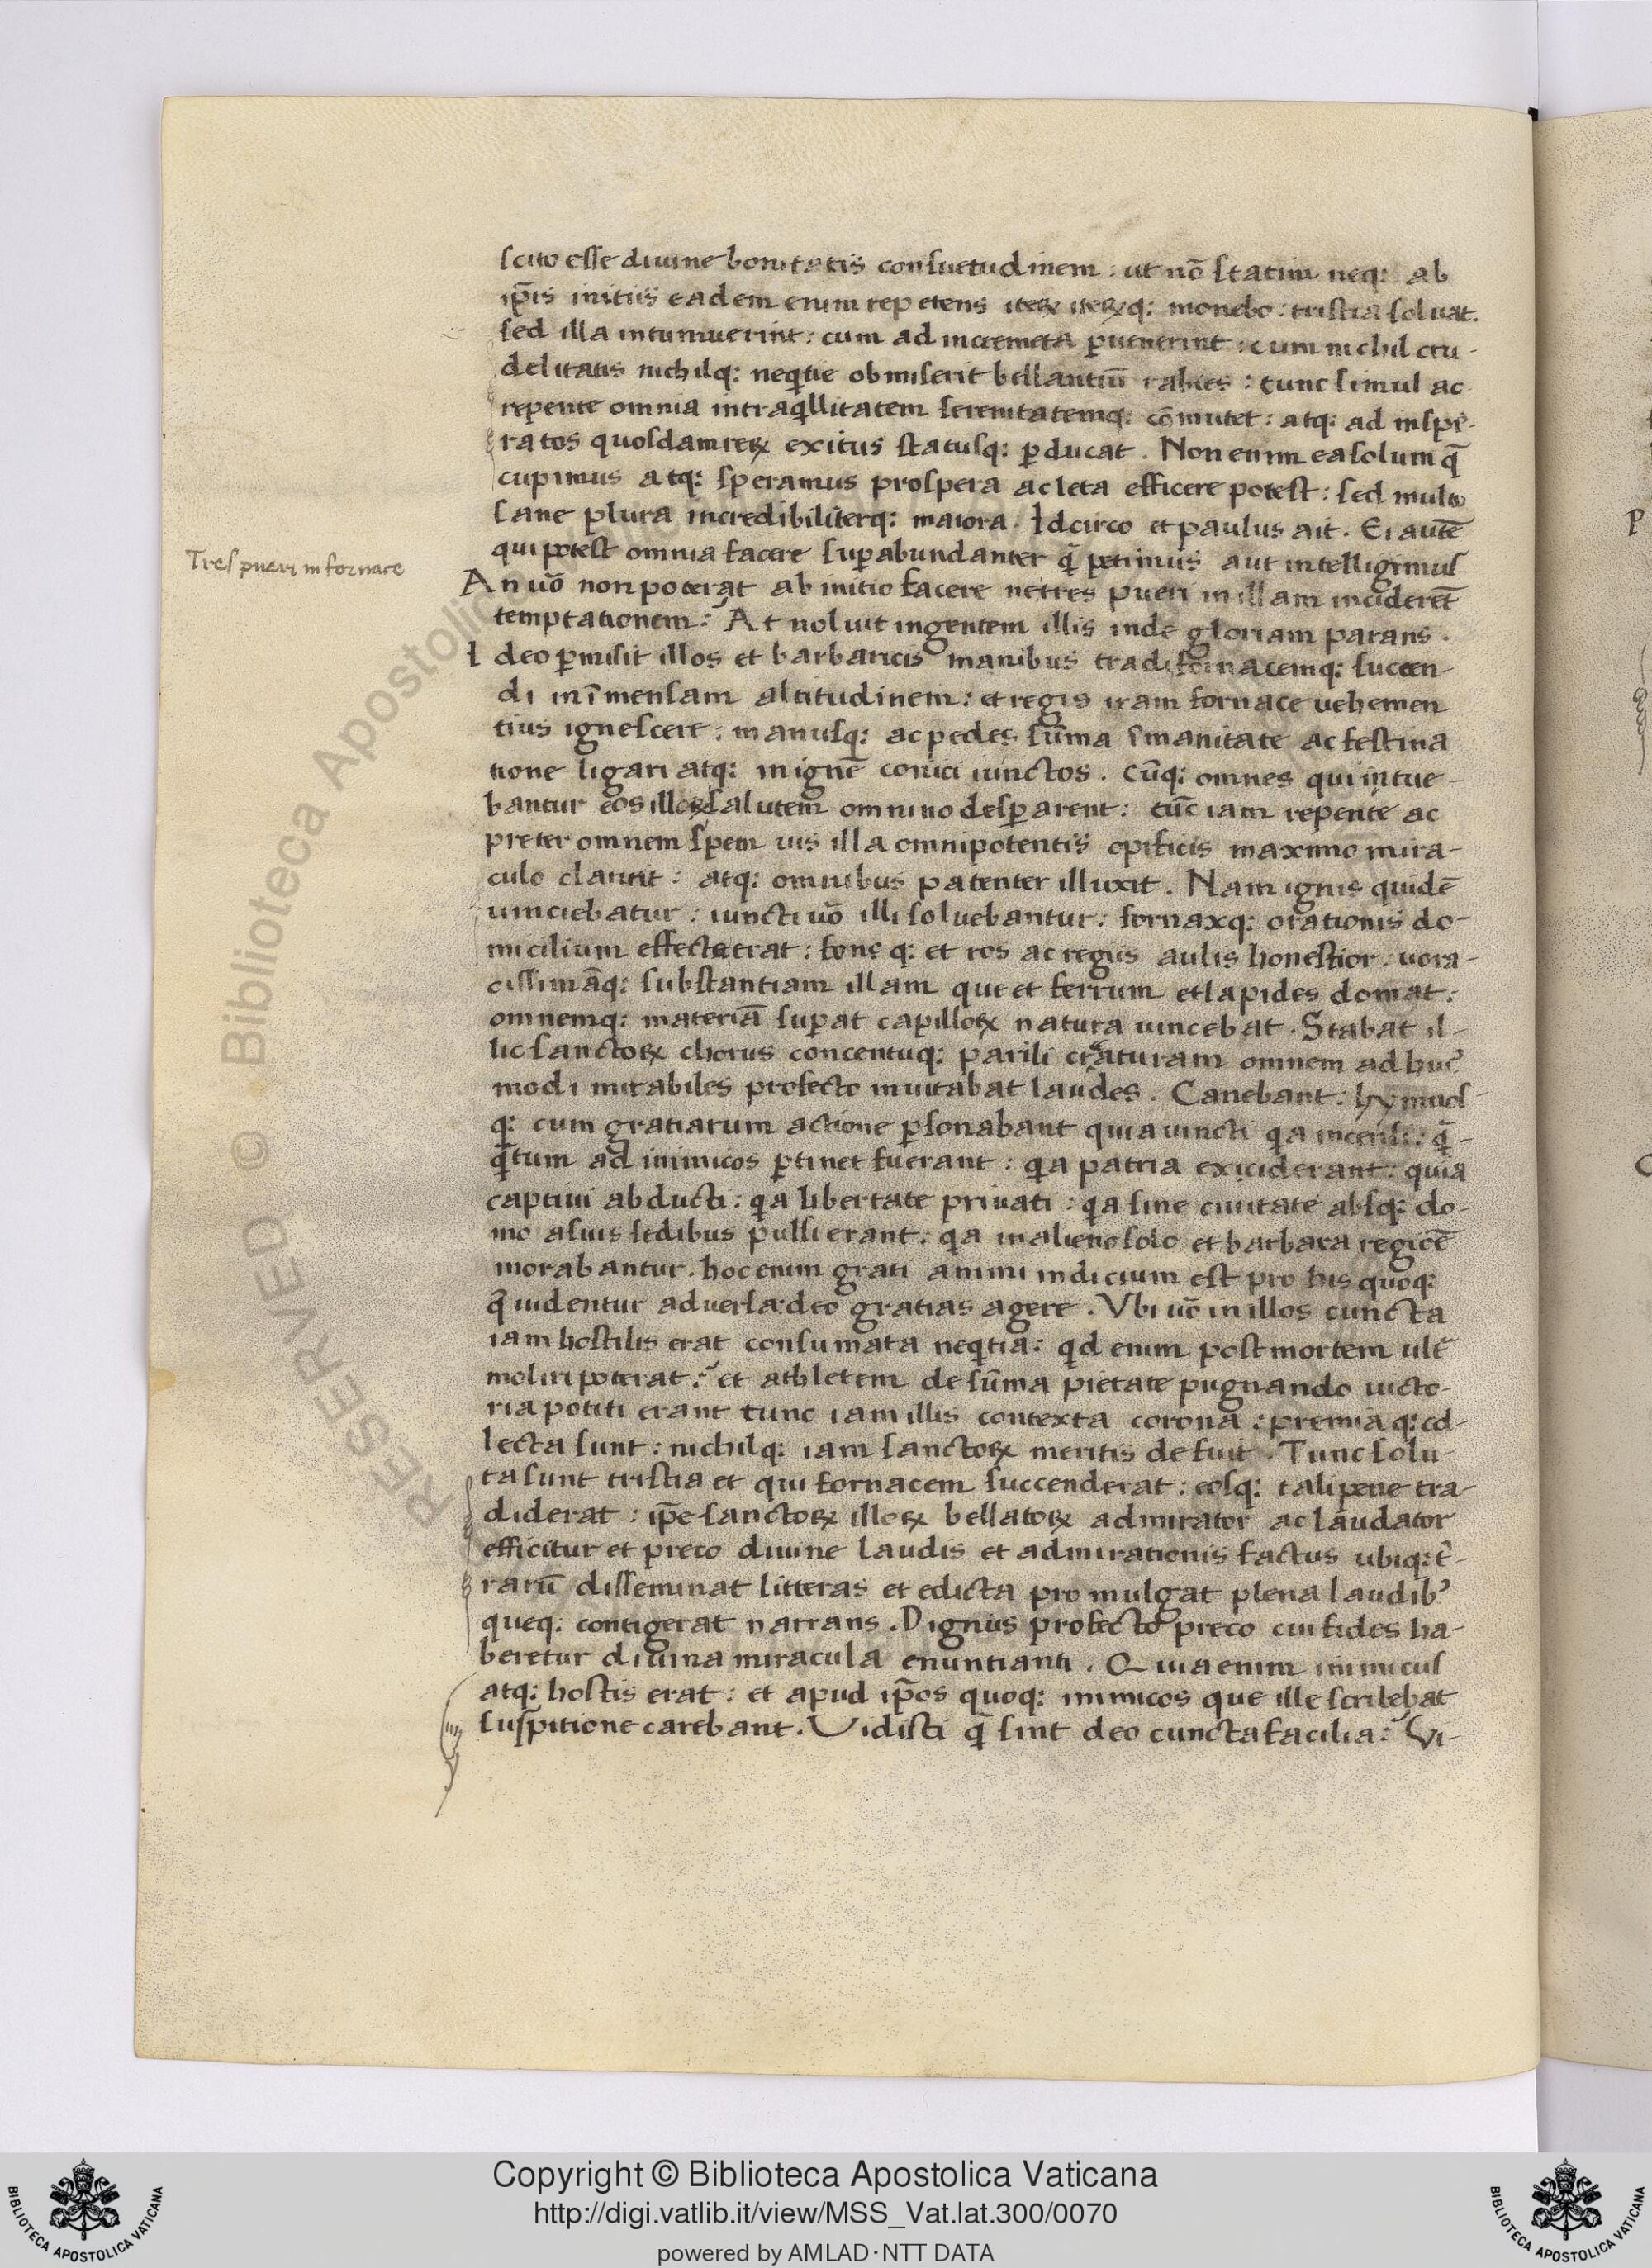 scito esse diuine bonitatis consuetudinem : ut nō statim neq: ab
ip̄is initiis eadem enim repetens iteꝝ iteꝝq: monebo : tristia soluat.
sed illa intumuerint : cum ad incremēta ꝑuenerint : cum nichil cru-
delitatis nichilq: neqͥtie obmiserit bellantiū rabies : tunc simul ac
repente omnia in traqͥllitatem serenitatemq: cōmutet : atq: ad inspe-
ratos quosdam reꝝ exitus statusq: ꝑducat . Non enim ea solum q̄
cupimus atq: speramus prospera ac leta efficere potest : sed multo
sane plura incredibiliterq: maiora . Idcirco et paulus ait . Ei autē
qui potest omnia facere suꝑabundanter q̄ petimus aut intelligimus
Tres pueri in fornace
An uō non poterat ab initio facere ne tres pueri in illam inciderēt
temptationem? At noluit ingentem illis inde gloriam parans .
Ideo ꝑmisit illos et barbaricis manibus tradi fornacemq: succen-
di in īmensam altitudinem : et regis iram fornace uehemen
tius ignescere : manusq: ac pedes sūma īmanitate ac festina
tione ligari atq: in ignē conici iunctos . Cūq: omnes qui intue-
bantur eos illoꝝ salutem omnino desꝑarent : tūc iam repente ac
preter omnem spem uis illa omnipotentis opificis maximo mira-
culo claruit : atq: omnibus patenter illuxit . Nam ignis quidē
uinciebatur : iuncti uō illi soluebantur : fornaxq: orationis do-
micilium effecta erat : fons q: et ros ac regiis aulis honestior . uora-
cissimāq: substantiam illam que et ferrum et lapides domat :
omnemq: materiā suꝑat capilloꝝ natura uincebat . Stabat il-
lic sanctoꝝ chorus concentuq: parili creaturam omnem ad huiꝰ
modi mirabiles profecto inuitabat laudes . Canebant : hymnos
q: cum gratiarum actione ꝑsonabant quia uincti qͥa incensi : q̄
q̄tum ad inimicos ꝑtinet fuerant : qͥa patria exciderant : quia
captiui abducti : qͥa libertate priuati : qͥa sine ciuitate absq: do-
mo a suis sedibus pulsi erant : qͥa in alieno solo et barbara regiōe
morabantur . hoc enim grati animi indicium est pro his quoq:
q̄ uidentur aduersa : deo gratias agere . Vbi uō in illos cuncta
iam hostilis erat consumata neqͥtia : qͥd enim post mortem ult̄
moliri poterat? et athletem de sūma pietate pugnando uicto-
ria potiti erant tunc iam illis contexta corona : premiaq: col-
lecta sunt : nichilq: iam sanctoꝝ meritis defuit . Tunc solu-
ta sunt tristia et qui fornacem succenderat : eosq: tali pene tra-
diderat : ip̄e sanctoꝝ illoꝝ bellatoꝝ admirator ac laudator
efficitur et preco diuine laudis et admirationis factus ubiq: t̄-
rarū disseminat litteras et edicta promulgat plena laudibꝰ
queq: contigerat narrans . Dignus profecto preco cui fides ha-
beretur diuina miracula enuntianti . Quia enim inimicus
atq: hostis erat : et apud ip̄os quoq: inimicos que ille scribebat
suspitione carebant . Vidisti q̄ sint deo cuncta facilia? Vi-
RESERVED © Biblioteca Apostolica
Copyright © Biblioteca Apostolica Vaticana
http://digi.vatlib.it/view/MSS_Vat.lat.300/0070
powered by AMLAD·NTT DATA
BIBLIOTECA APOSTOLICA VATICANA
BIBLIOTECA APOSTOLICA VATICANA